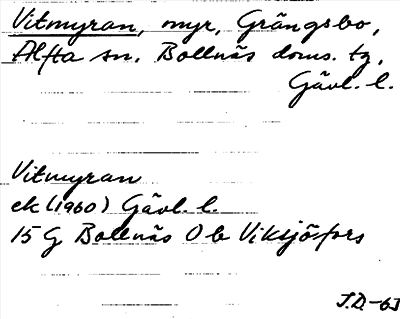 Vitmyran, myr, Grängsbo,
Alfta sn. Bollnäs doms. tg,
Gävl. l.
Vitmyran
ek (1960) Gävl. l.
15 G Bollnäs 0 b Viksjöfors
J.D.-63